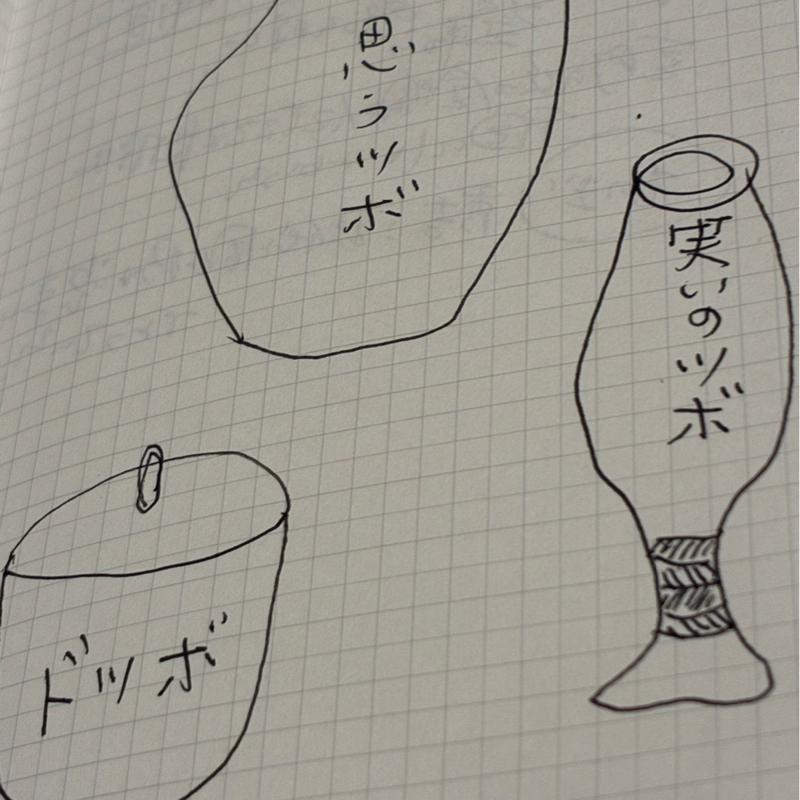 思うツボ
実いのツボ
ドツボ